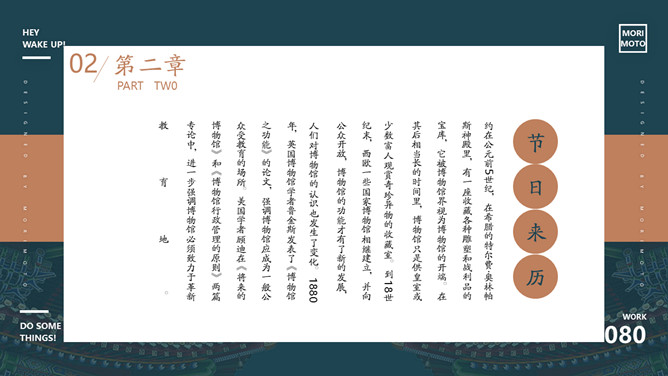 HEY
WAKE UP!
MORI
MOTO
02/第二章
PART TWO
节日来历
约在公元前5世纪，在希腊的特尔费·奥林帕
斯神殿里，有一座收藏各种雕塑和战利品的
宝库，它被博物馆界视为博物馆的开端。在
其后相当长的时间里，博物馆只是供皇室或
少数富人观赏奇珍异物的收藏室。到18世
纪末，西欧一些国家博物馆相继建立，并向
公众开放，博物馆的功能才有了新的发展，
人们对博物馆的认识也发生了变化。1880
年，英国博物馆学者鲁金斯发表了《博物馆
之功能》的论文，强调博物馆应成为一般公
众受教育的场所。美国学者顾迪在《将来的
博物馆》和《博物馆行政管理的原则》两篇
专论中，进一步强调博物馆必须致力于革新
教育地。
DESIGNED BY MORIMOTO
DESIGNED BY MORIMOTO
DO SOME
THINGS!
WORK
080